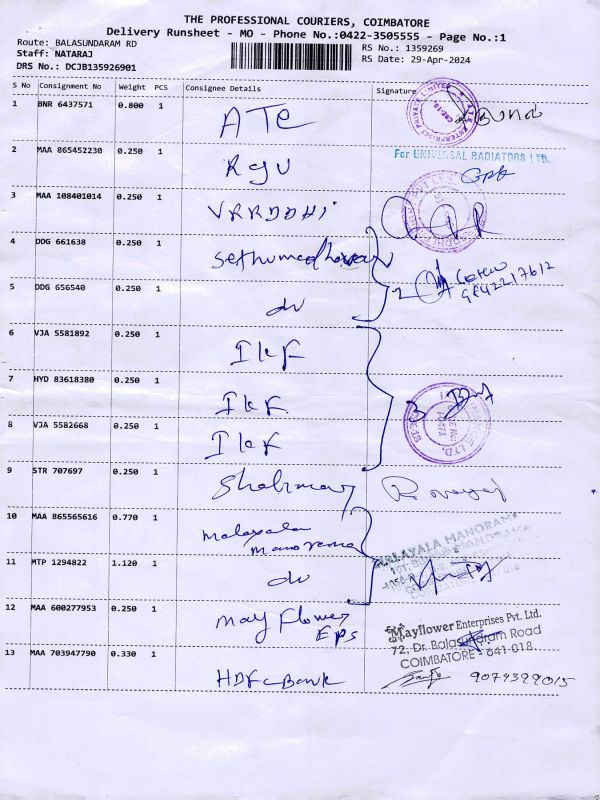 THE PROFESSIONAL COURIERS, COIMBATORE
Delivery Runsheet - MO - Phone No.:0422-3505555 - Page No.:1
Route: BALASUNDARAM RD
Staff: NATARAJ
DRS No.: DCJB135926901
RS No.: 1359269
RS Date: 29-Apr-2024
S No Consignment No Weight PCS Consignee Details Signature
1 BNR 6437571 0.800 1 ATC
2 MAA 865452230 0.250 1 RGU
For UNIVERSAL RADIATORS LTD.
3 MAA 108401014 0.250 1 VRRDDHI
4 DDG 661638 0.250 1 Sethumadhavan
5 DDG 656540 0.250 1 do
2
6 VJA 5581892 0.250 1 IKF
7 HYD 83618380 0.250 1 IKF
3
8 VJA 5582668 0.250 1 IKF
9 STR 707697 0.250 1
10 MAA 865565616 0.770 1 malayala
manorama
MALAYALA MANORAMA
11 MTP 1294822 1.120 1 do
12 MAA 600277953 0.250 1 may flower
EPS
Mayflower Enterprises Pvt. Ltd.
72, Dr. Balasundaram Road
COIMBATORE - 641 018.
13 MAA 703947790 0.330 1 HDFC Bank
9074399015